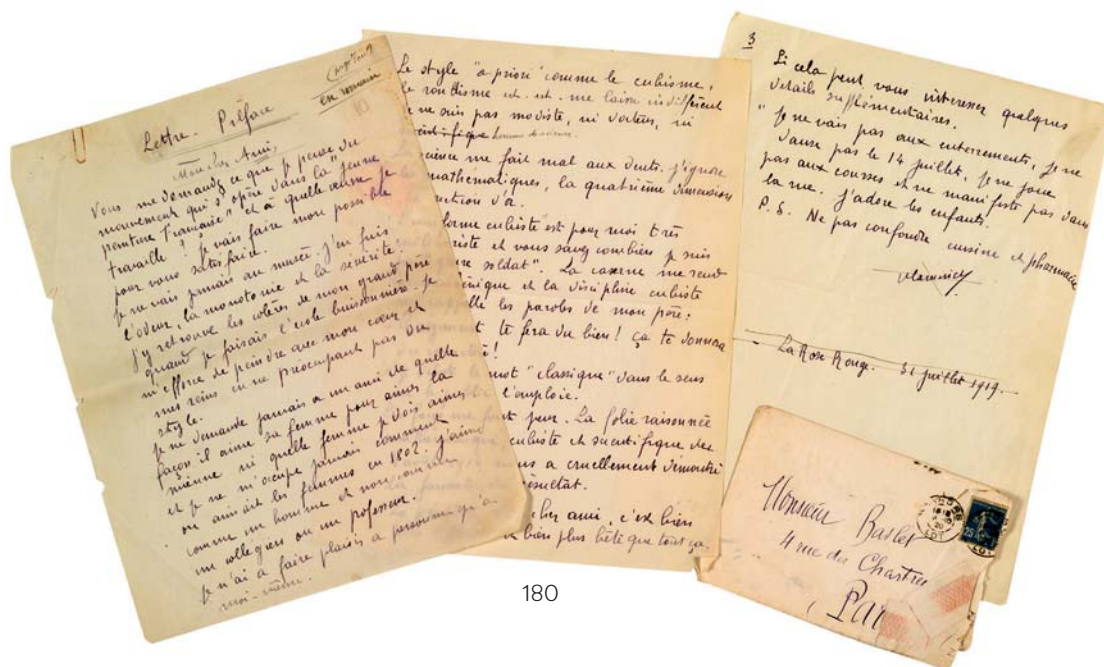 Lettre - Préface
en romain
Mon cher Ami,
Vous me demandez ce que je pense du
mouvement qui s'opère dans la "jeune
peinture française" et à quelle œuvre je
travaille? Je vais faire mon possible
pour vous satisfaire.
Je ne vais jamais au musée. J'en fuis
l'odeur, la monotonie et la sévérité.
J'y retrouve les colères de mon grand père
quand je faisais l'école buissonnière. Je
m'efforce de peindre avec mon cœur et
mes reins en ne me préoccupant pas du
style.
Je ne demande jamais à un ami de quelle
façon il aime sa femme pour aimer la
mienne ni quelle femme je dois aimer
et je ne m'occupe jamais comment
on aimait les femmes en 1802. J'aime
comme un homme et non comme
un collégien ou un professeur.
Je n'ai à faire plaisir à personne qu'à
moi-même.
Le style "a priori" comme le cubisme,
le rondisme et. et. me laisse indifférent
je ne suis pas modiste, ni docteur, ni
homme de science.
science me fait mal aux dents. J'ignore
mathématiques, la quatrième dimension
section d'or.
forme cubiste est pour moi très
et vous savez combien je suis
soldat". La caserne me rend
et la discipline cubiste
les paroles de mon père:
te fera du bien! ça te donnera
mot "classique" dans le sens
l'emploie.
peur. La folie raisonnée
cubiste et scientifique des
a cruellement démontré
résultat.
cher ami, c'est bien
bien plus bête que tout ça.
3
Si cela peut vous intéresser quelques
détails supplémentaires.
"Je ne vais pas aux enterrements, je ne
danse pas le 14 juillet, je ne joue
pas aux courses et ne manifeste pas dans
la rue. J'adore les enfants.
P.S. Ne pas confondre cuisine et pharmacie
Vlaminck
La Rose Rouge. 31 juillet 1919.
Monsieur
4 rue des Chartres
LOT
25
180